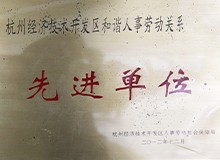 杭州经济技术开发区和谐人事劳动关系
先进单位
杭州经济技术开发区人事劳动社会保障局
二〇一二年十二月